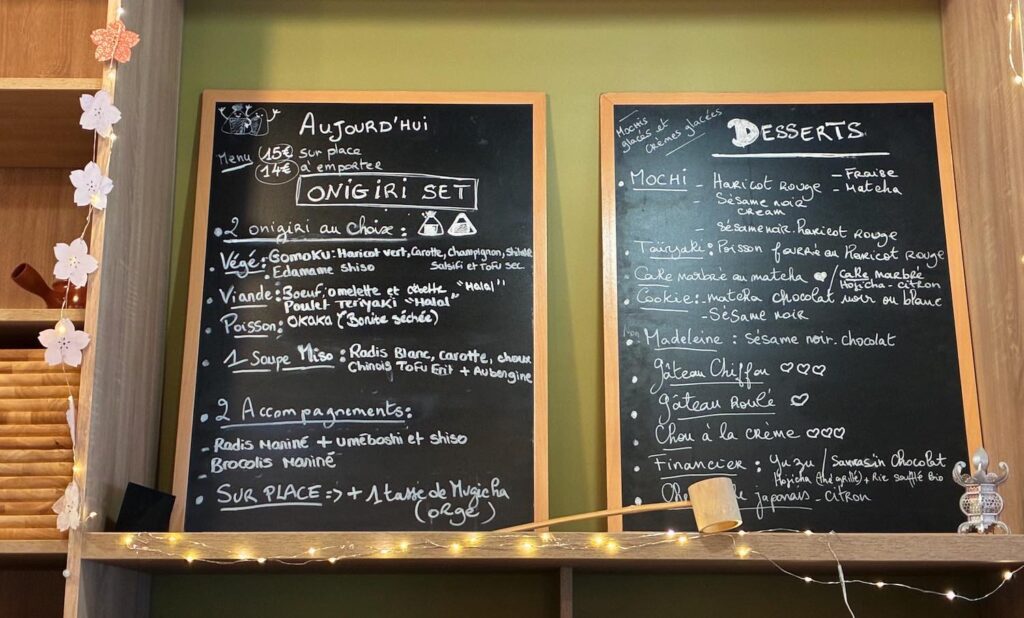 AUJOURD'HUI
Menu 15€ sur place
14€ à emporter
ONIGIRI SET
• 2 onigiri au choix :
• Végé : Gomoku : Haricot vert, Carotte, champignon,
Salsifi et Tofu sec
• Edamame shiso
• Viande : Boeuf, omelette et "Halal"
Poulet Teriyaki "Halal"
• Poisson : OKAKA (Bonite séchée)
• 1 Soupe Miso : Radis Blanc, carotte, choux
Chinois Tofu Frit + Aubergine
• 2 Accompagnements :
- Radis Mariné + umeboshi et shiso
- Brocolis Mariné
• SUR PLACE => + 1 tasse de Mugicha
(orge)
Mochis
glacés et
crèmes glacées
DESSERTS
• MOCHI - Haricot Rouge - Fraise
- Matcha
- Sésame noir
cream
- Sésame noir. Haricot rouge
• Taiyaki : Poisson fourré au Haricot rouge
• Cake marbré au matcha / cake marbré
Hojicha - citron
• Cookie : - matcha chocolat noir ou blanc
- Sésame noir
• Madeleine : Sésame noir. chocolat
• Gâteau Chiffon
• Gâteau Roulé
• Chou à la crème
• Financier : Yuzu / Sarrasin Chocolat
Hojicha (thé grillé) + Riz soufflé Bio
• japonais - citron